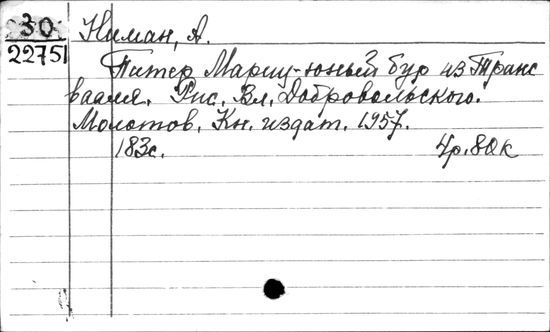 30 Ниман, А.
22751
Питер Мариц-юный бур из Транс
вааля. Рис. Вл. Добровольского.
Молотов. Кн. издат. 1957.
183с. 4р.80к